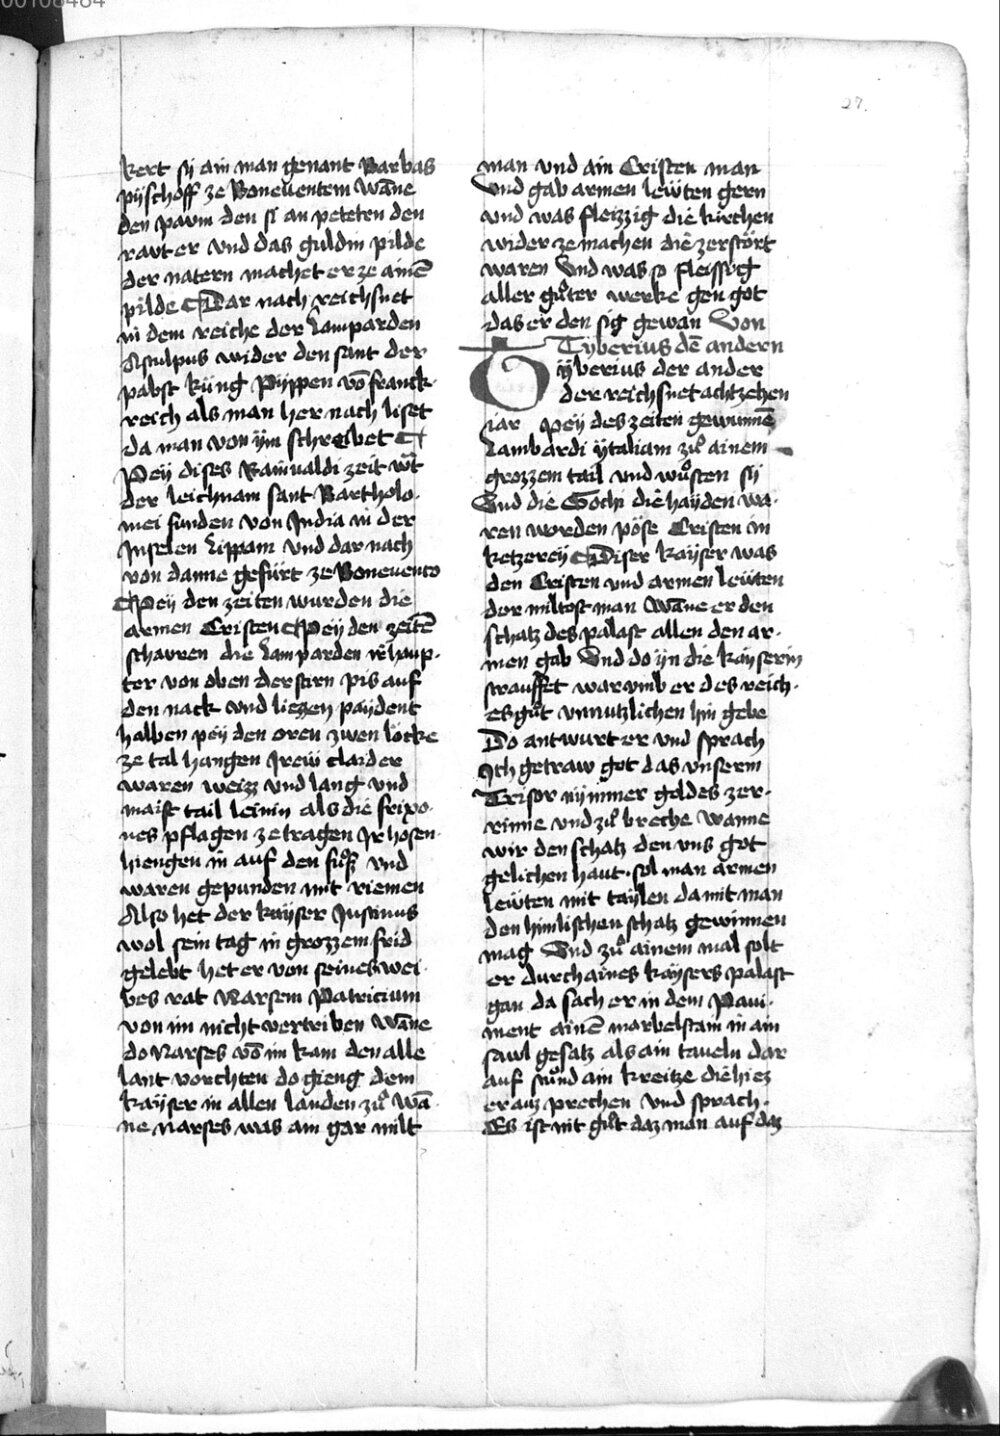 00108484
27.
kert sy ain man genant Barbas
pyschoff ze Beneuentem Wāne
den pawm den si an peteten den
rawt er vnd das guldin pilde
der natern machet er ze ainē
pilde Dar nach reichsnet
in dem reiche der Lamparden
Astulpus wider den sant der
pabst Küng Pyppen vō franck-
reich als man her nach liset
da man von ym schreibet
Pey dises Rainualdi zeit wt
der leichnam sant Bartholo-
mei funden von Jndia in der
Jnselen Lippam vnd dar nach
von danne gefürt ze Boneuento
Pey den zeiten wurden die
armen Cristen Pey den zeitē
schauren die Lamparden ir haup-
ter von oben der stirn pis auf
den nack vnd liezzen paydent
halben pey den oren zwen löcke
ze tal hangen Jrew claider
waren weizz vnd lang vnd
maist tail leinin als die frixo-
nes pflagen ze tragen Jr hosen
hiengen in auf den fuͦzz vnd
waren gepunden mit riemen
Also het der kayser Justinus
wol sein tag in grozzem frid
gelebt het er von seines wei-
bes rat Narsem Patricium
von im nicht vertriben Wāne
do Narses vō im kam den alle
lant vorchten do gieng dem
kayser in allen landen zuͦ Wā-
ne Narses was ain gar milt
man vnd ain Cristen man
Vnd gab armen lewten gern
vnd was fleizzig die kirchen
wider ze machen die zerstört
waren Vnd was so fleissig
aller guͦter werke gen got
das er den sig gewan Von
Tyberius dē andern
Tyberius der ander
der reichsnet achtzehen
iar Pey des zeiten gewunnē
Lambardi ytaliam zuͦ ainem
grozzem tail vnd wuͦsten sy
Vnd die Gothi die hayden wa-
ren worden pöse Cristen in
ketzerey Diser kayser was
den Cristen vnd armen lewten
der miltost man Wāne er den
schatz des palast allen den ar-
men gab Vnd do yn die kayserin
strauffet warvmb er des reich-
es guͦt vnnutzlichen hin gebe
Do antwurt er vnd sprach
Jch getraw got das vnserm
Trisor nymmer geldes zer-
rinne vnd zuͦ breche wanne
wir den schatz den vns got
gelichen haut sol man armen
lewten mit taylen da mit man
den himlischen schatz gewinnen
mag Vnd zuͦ ainem mal solt
er durch aines kaysers palast
gan da sach er in dem Paui-
ment ainē marbelstain in ain
sawl gesatz als ain taueln dar
auf stuͦnd ain kreitze die hiez
er auz prechen vnd sprach
Es ist nit guͦt daz man auf daz